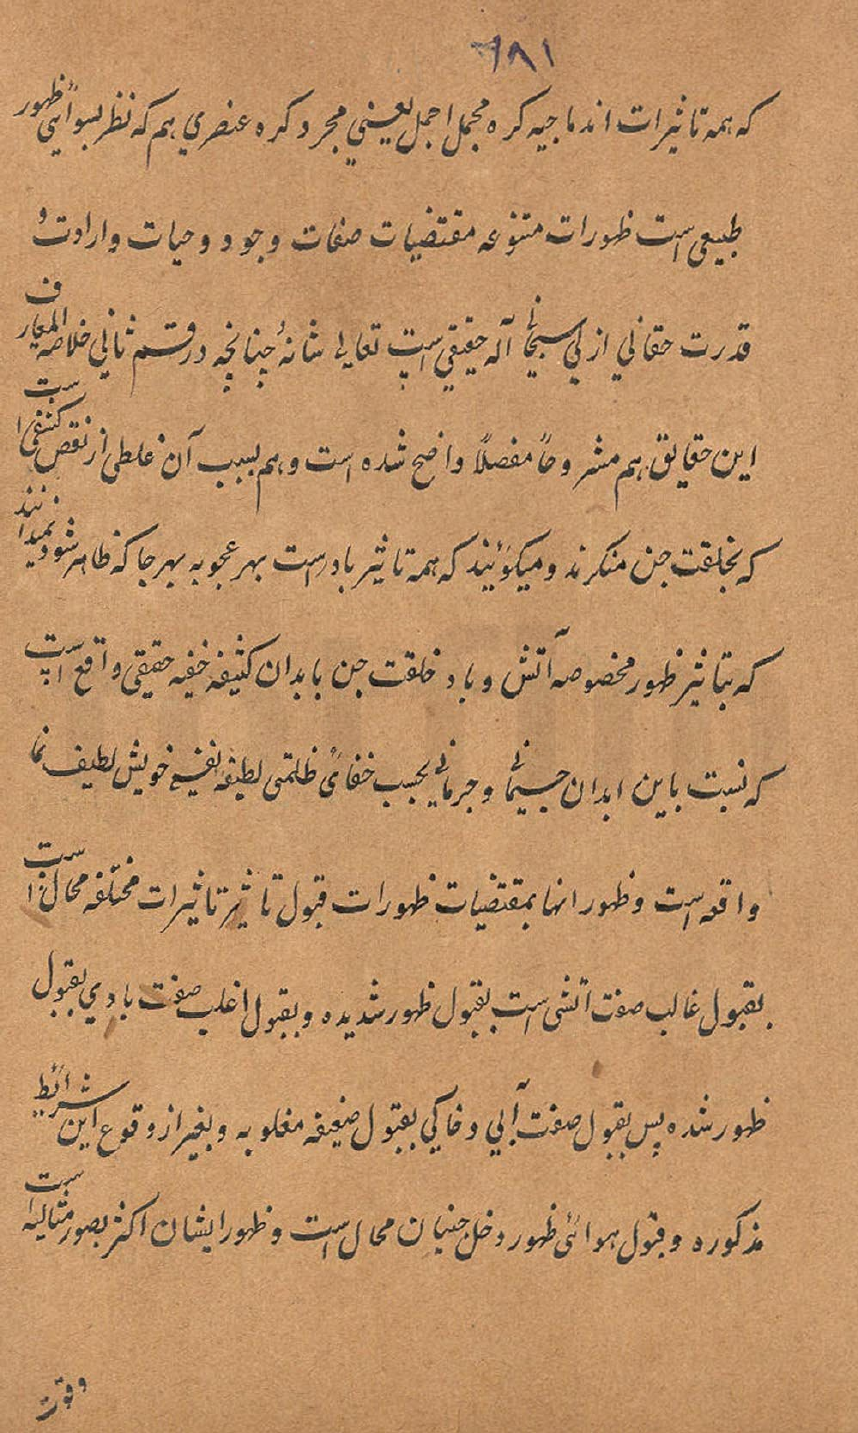 ۶۸۱
که همه تاثیرات اندماجیه کره مجمل اجمل یعنی مجرد کره عنصری هم که نظر بسوای ظهور
طبیعی است ظهورات متنوعه مقتضیات صفات وجود و حیات و ارادت و
قدرت حقانی ازلی سبحانی آله حقیقی است تعالی شانهٔ چنانچه در قسم ثانی خلاصه المعارف
این حقایق هم مشروحاً مفصلاً واضح شده است و هم بسبب آن غلطی از نقص کشفی است
که بخلقت جن منکرند و میکوئیند که همه تاثیر باد است بهر عجوبه بهر جا که ظاهر شود نمیدانند
که بتاثیر ظهور مخصوصه آتش و باد خلقت جن بابدان کثیفه خفیه حقیقی واقع است
که نسبت باین ابدان جسمانی و جرمانی بحسب خفائی ظلمتی لطیفه خویش لطیف نما
واقعه است و ظهور انها بمقتضیات ظهورات قبول تاثیر تاثیرات مختلفه محال است
بقبول غالب صفت آتشی است بقبول ظهور شدیده و بقبول اغلب صفت بادی بقبول
ظهور شده پس بقبول صفت آبی و خاکی بقبول ضعیفه مغلوبه و بغیر از وقوع این شرائط
مذکوره و قبول هوائی ظهور دخل جنیان محال است و ظهور ایشان اکثر بصور مثالیه است
وقت